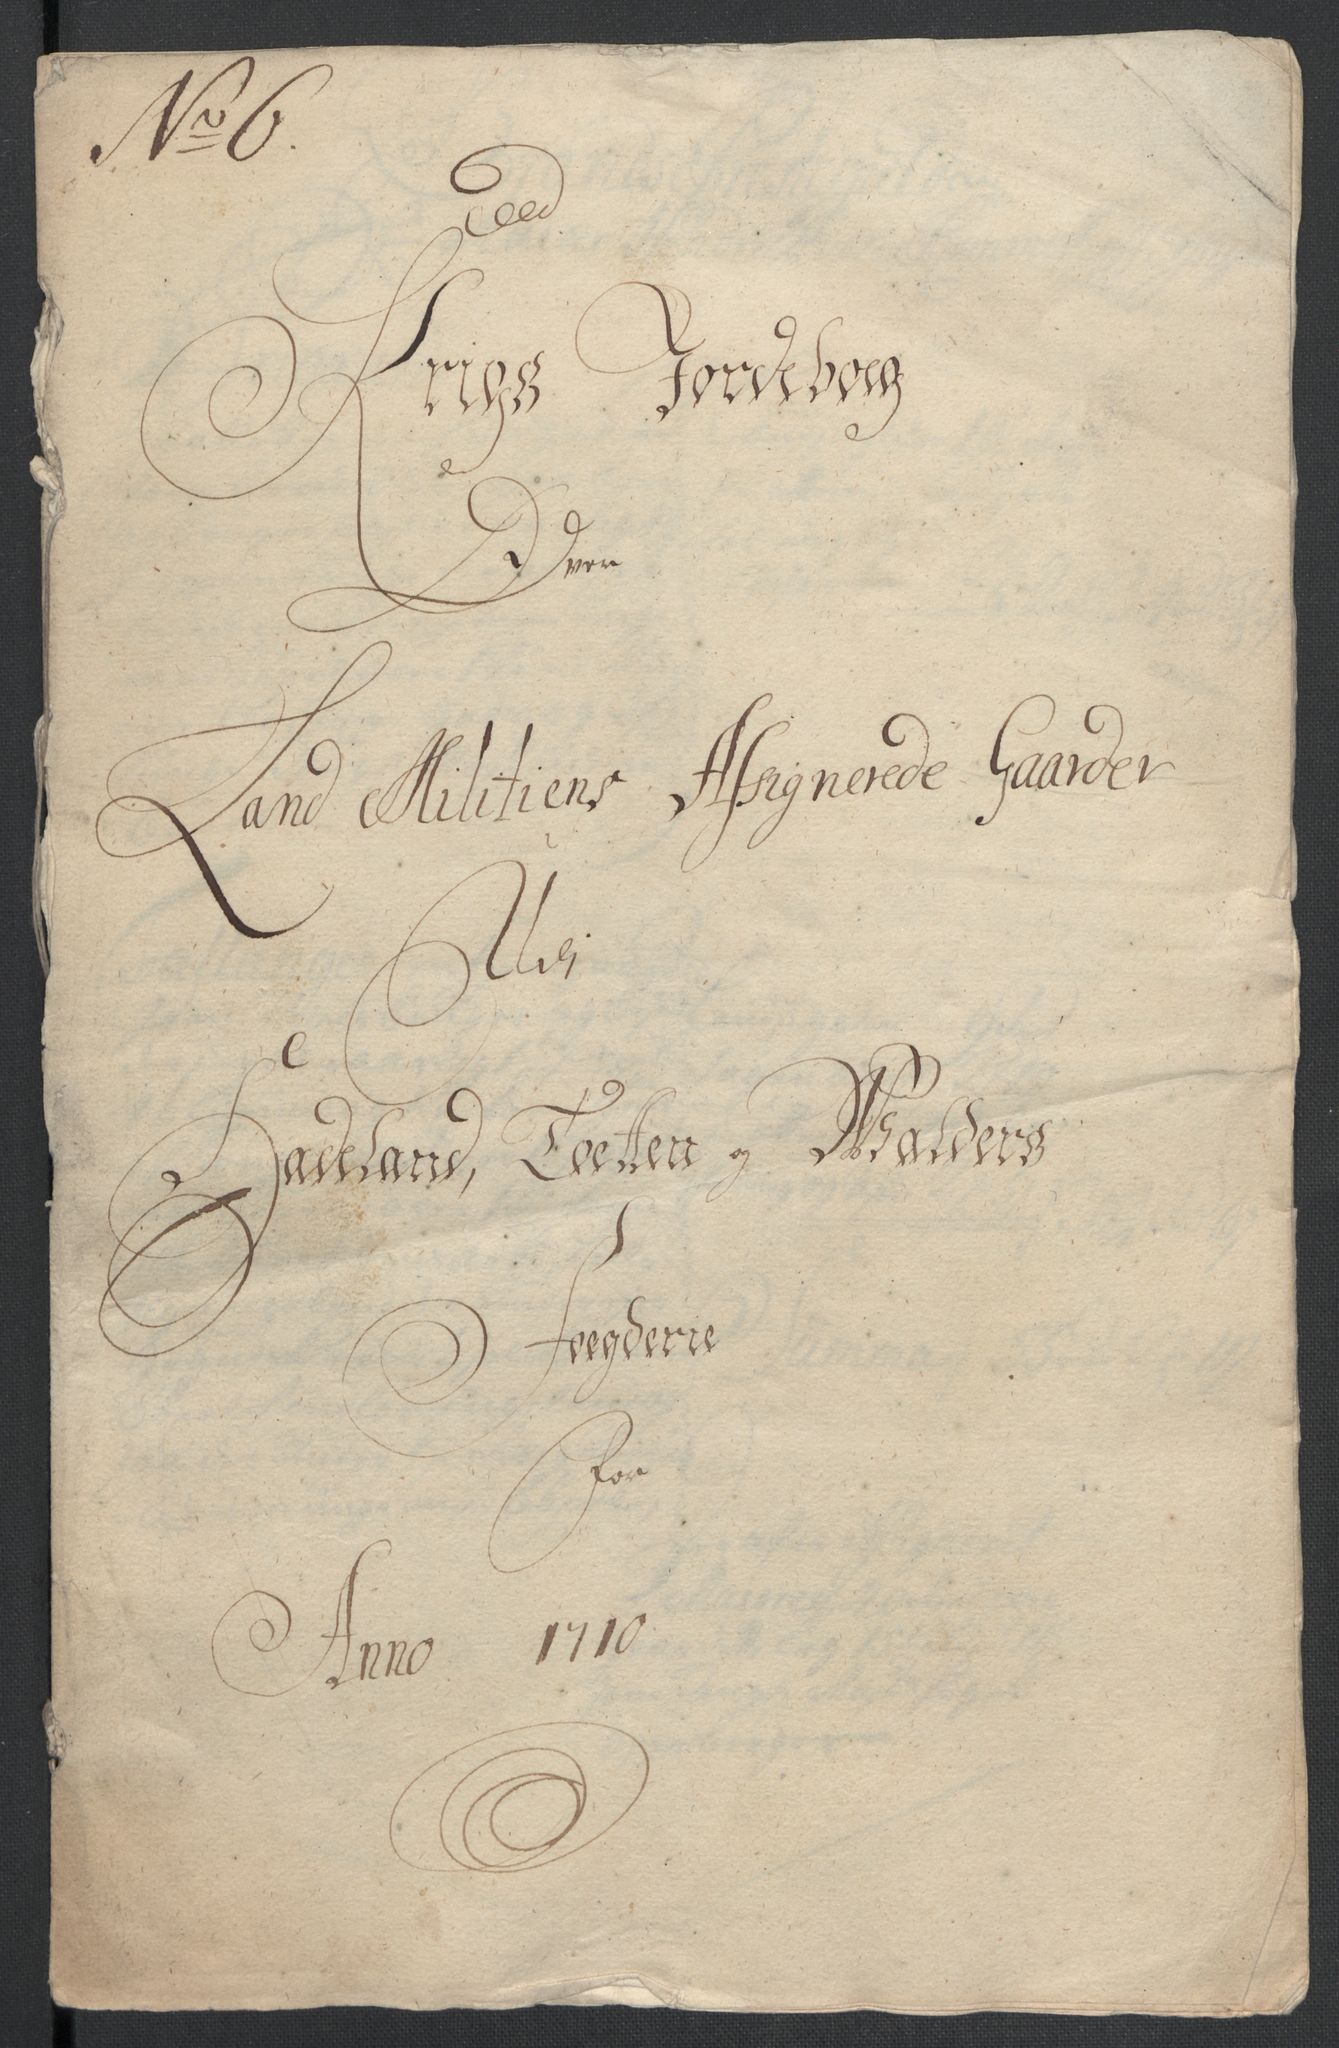 No 6.
Krigs Jordebog
Over
Land Militiens Assignerede Gaarder
Udi
Hadeland, Toetten og Walders
Foegderie
for
Anno 1710